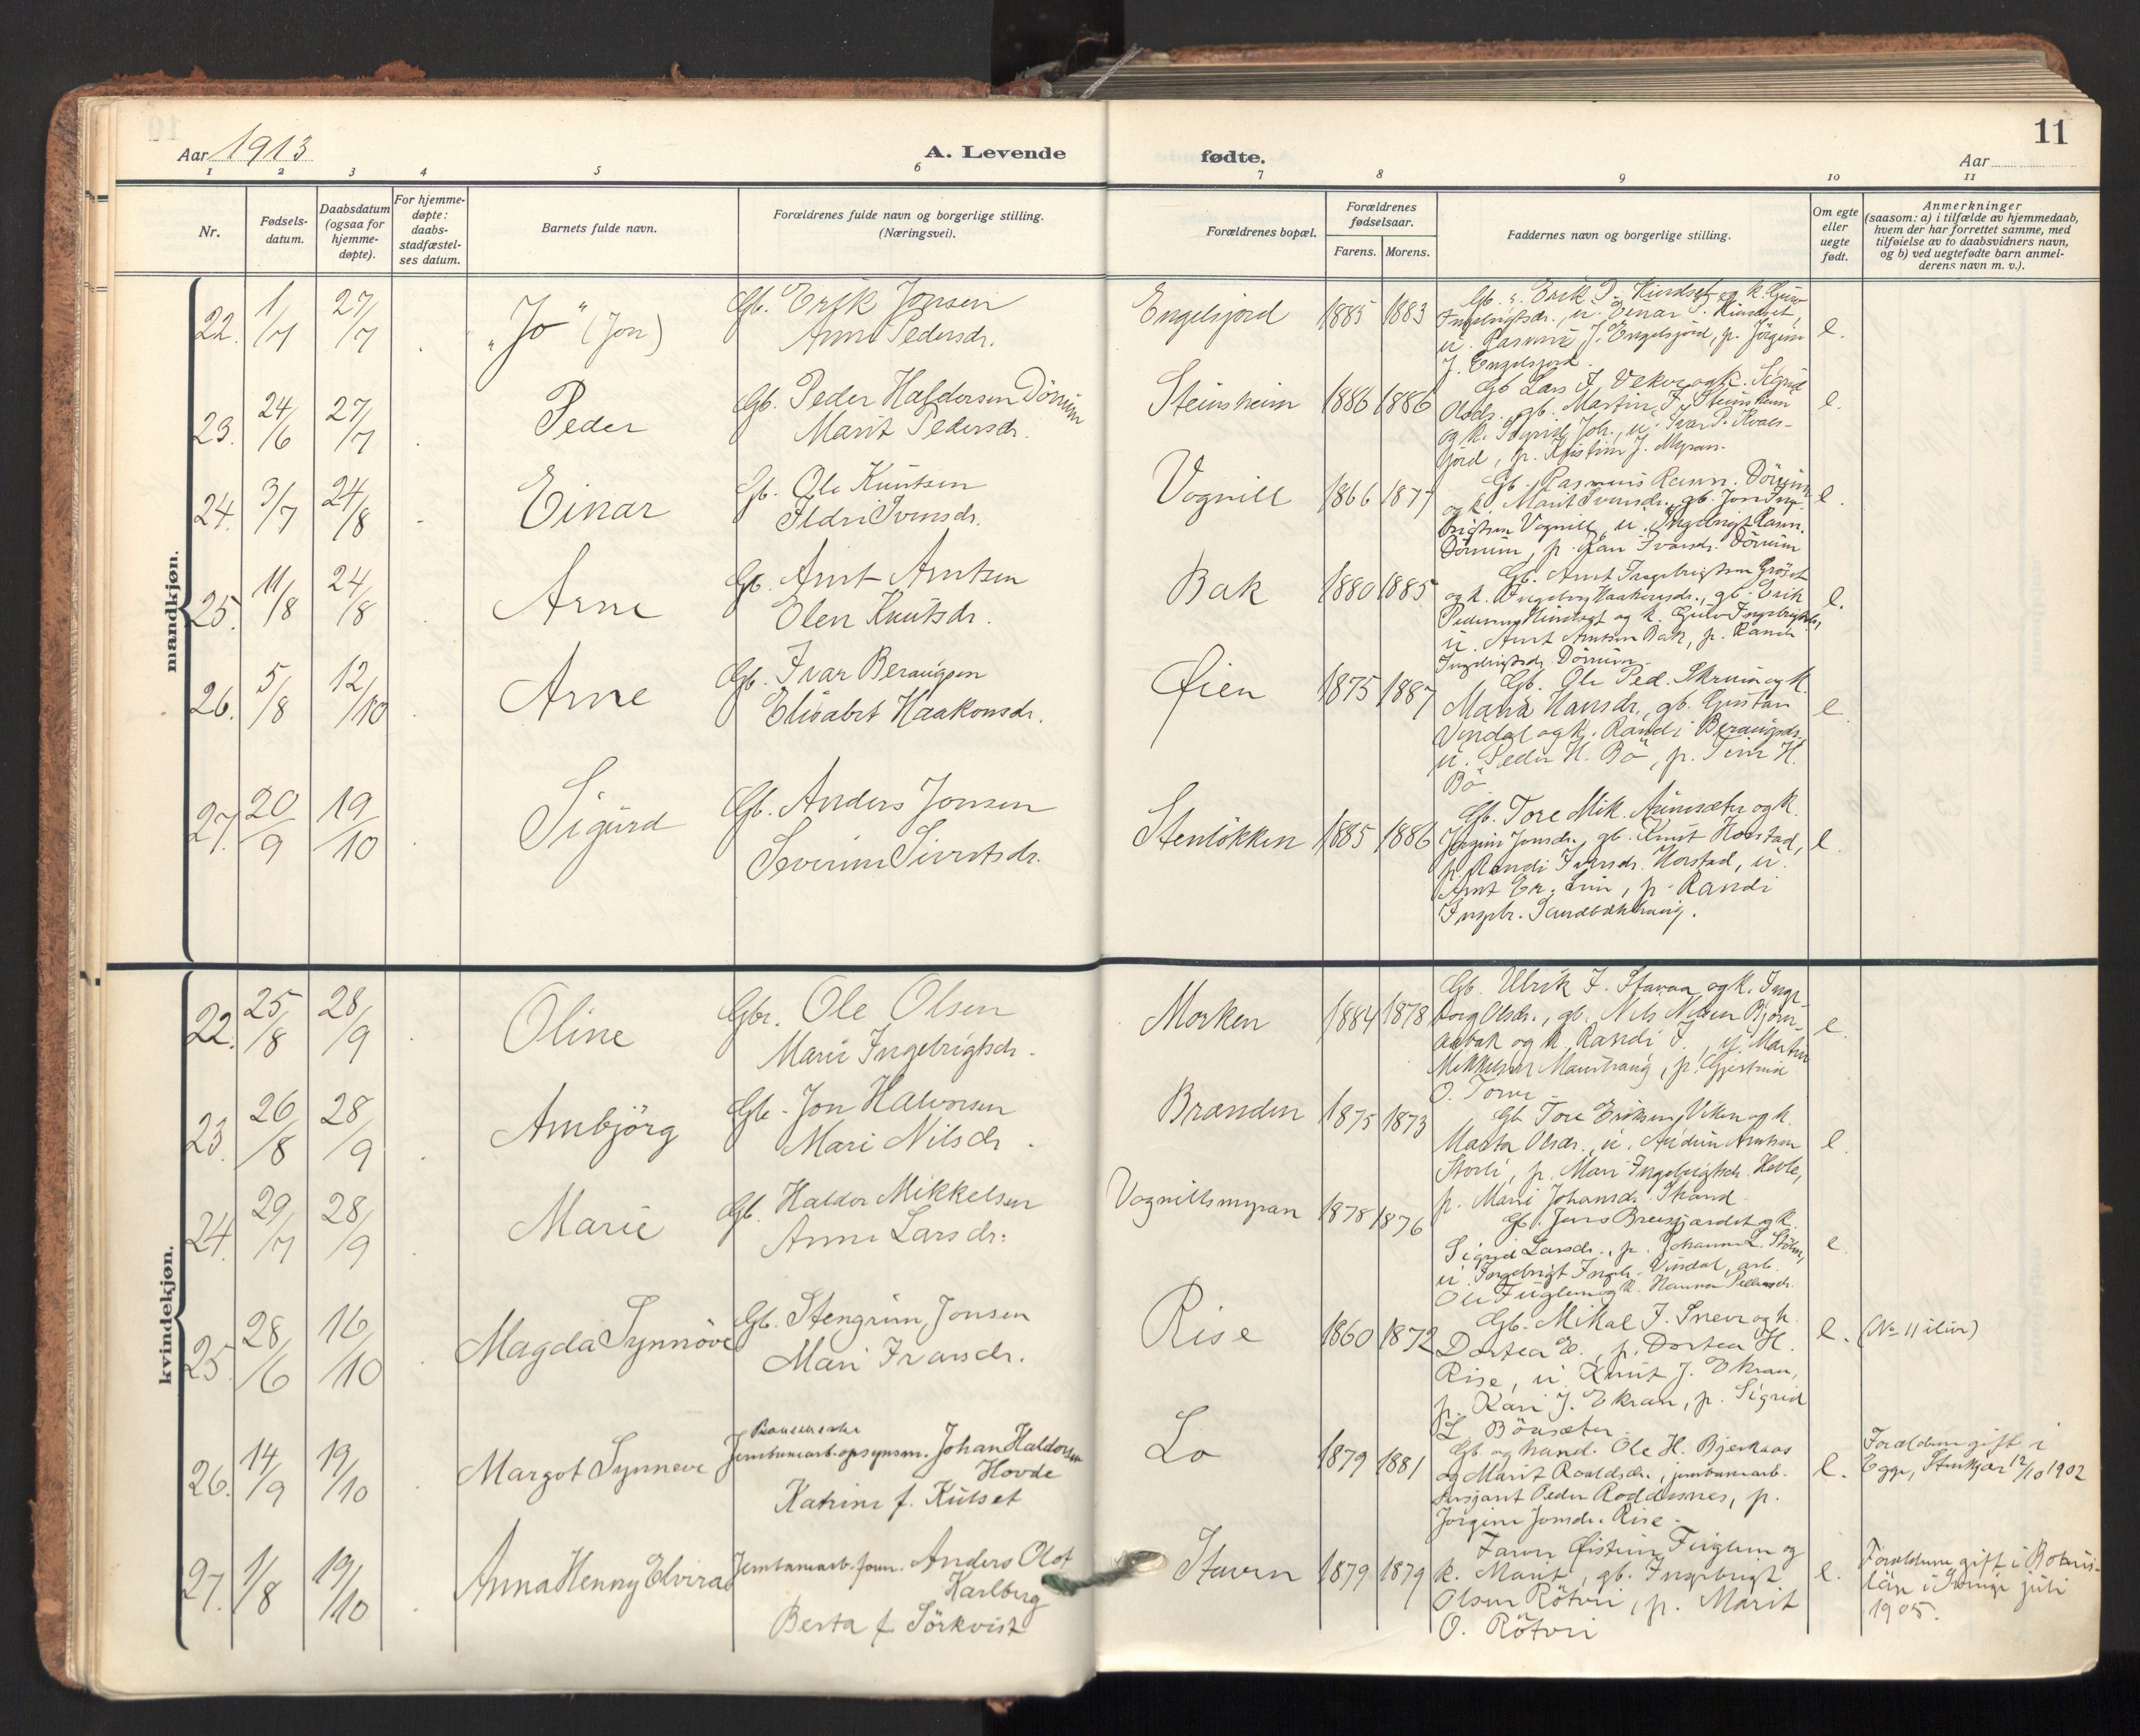 11
Aar 1913
A. Levende fødte.
Aar
1 2 3 4 5 6 7 8 9 10 11
Nr.
Fødsels-
datum.
Daabsdatum
(ogsaa for
hjemme-
døpte).
For hjemme-
døpte:
daabs-
stadfæstel-
ses datum.
Barnets fulde navn.
Forældrenes fulde navn og borgerlige stilling.
(Næringsvei).
Forældrenes bopæl.
Forældrenes
fødselsaar.
Farens. Morens.
Faddernes navn og borgerlige stilling.
Om egte
eller
uegte
født.
Anmerkninger
(saasom: a) i tilfælde av hjemmedaab,
hvem der har forrettet samme, med
tilføielse av to daabsvidners navn,
og b) ved uegtefødte barn anmel-
derens navn m. v.).
mandkjøn.
22. 1/7 27/7 "Jo" (Jon) Gb. Erik Jonsen
Anne Pedersdr.
Engelsjord 1885 1883
J. Engelsjord, p. Jörgine
J. Engelsjord.
e.
23. 24/6 27/7 Peder Gb. Peder Haldorsen Dörum
Marit Pedersdr.
Steinsheim 1886 1886
Gb Lars J. Veker og k. Sigrid
Olsdr., gb. Martin J. Steinsheim
jord, p. Kristine J. Myran.
e.
24. 3/7 24/8 Einar Gb. Ole Knutsen
Ildri Iversdr.
Vognill 1866 1877
Gb. Rasmus Rasm. Dörum
og k. Marit Iversdr., gb. Jon Inge-
brigtsen Vognill, u. Ingebrigt Rasm.
Dörum, p. Kari Ivarsdr. Dörum
e.
25. 11/8 24/8 Arne Gb. Arnt Arntsen
Olen Knutsdr.
Bak 1880 1885
Gb. Arnt Ingebrigtsen Gröset
og k. Ingeborg Haakonsdr., gb. Erik
u. Arnt Arntsen Bak, p. Randi
Ingebrigtsdr. Dörum.
e.
26. 5/8 12/10 Arne Gb. Ivar Beraugsen
Elisabet Haakonsdr.
Øien 1875 1887
Gb. Ole Ped. Skruin og k.
Maria Hansdr., gb. Gustav
Vindal og k. Randi Beraugsdr.
u. Peder H. Bö, p. H.
Bö
e.
27. 20/9 19/10 Sigurd Gb. Anders Jonsen
Severine Sivertsdr.
Stenlökken 1885 1886
Gb. Tore Mik. og k.
Jörgine Jonsdr., gb. Knut Horstad,
p. Randi Iversdr. Horstad, u.
Arnt Er. , p. Randi
Ingebr. Sandbækhaug.
e.
kvindekjøn.
22. 25/8 28/9 Oline Gbr. Ole Olsen
Mari Ingebrigtsdr.
Morken 1884 1878
Gb. Ulrik J. Stavaa og k. Inge-
borg Olsdr., gb. Nils Nilsen Björn-
aabak og k. Randi J., u. Martin
Mikkelsen Maurhaug, p. Gjertrud
O. Torve
e.
23. 26/8 28/9 Arnbjörg Gb. Jon Halvorsen
Mari Nilsdr.
Brænden 1875 1873
Gb. Tore Eriksen Viken og k.
Marta Olsdr., u. Audun Arntsen
Storli, p. Mari Ingebrigtsdr. Hevle,
p. Mari Johansdr. Strand.
e.
24. 29/7 28/9 Marie Gb. Haldor Mikkelsen
Anne Larsdr.
Vognillsmyran 1878 1876
Gb. Jens Breesgardet og k.
Sigrid Larsdr., p. Johanne L. Stölen,
u. Ingebrigt Ingebr. Vindal, arb.
Ole Fuglem og k. Hanna Pedersdr.
e.
25. 28/6 16/10 Magda Synnöve Gb. Stengrim Jonsen
Mari Ivarsdr.
Rise 1860 1872
Gb. Mikal J. Snever og k.
Dortea E., p. Dortea H.
Rise, u. Knut J. Ekran,
p. Kari J. Ekran, p. Sigrid
L. Bönsæter.
e. (No 11 )
26. 14/9 19/10 Margot Synneve Jernbanearb. opsynsm. Johan Haldorsen
Hovde
Katrine f. Külset
Lo 1879 1881
Gb. og hand. Ole H. Bjerkaas
og Marit Roaldsdr., jernbanearb.
sersjant Peder Roddesnes, p.
Jörgine Jonsdr. Rise.
e. Forældrene gift i
Egge, Stenkjær 12/10 1902
27. 1/8 19/10 Anna Henny Elvira Jernbanearb. form. Anders Olof
Karlberg
Berta f. Sörkvist
Staven 1879 1879
Faren Øistein Fuglem og
k. Marit, gb. Ingebrigt
Olsen Rötvei, p. Marit
O. Rötvei
e. Forældrene gift i
län i Sverige juli
1905.